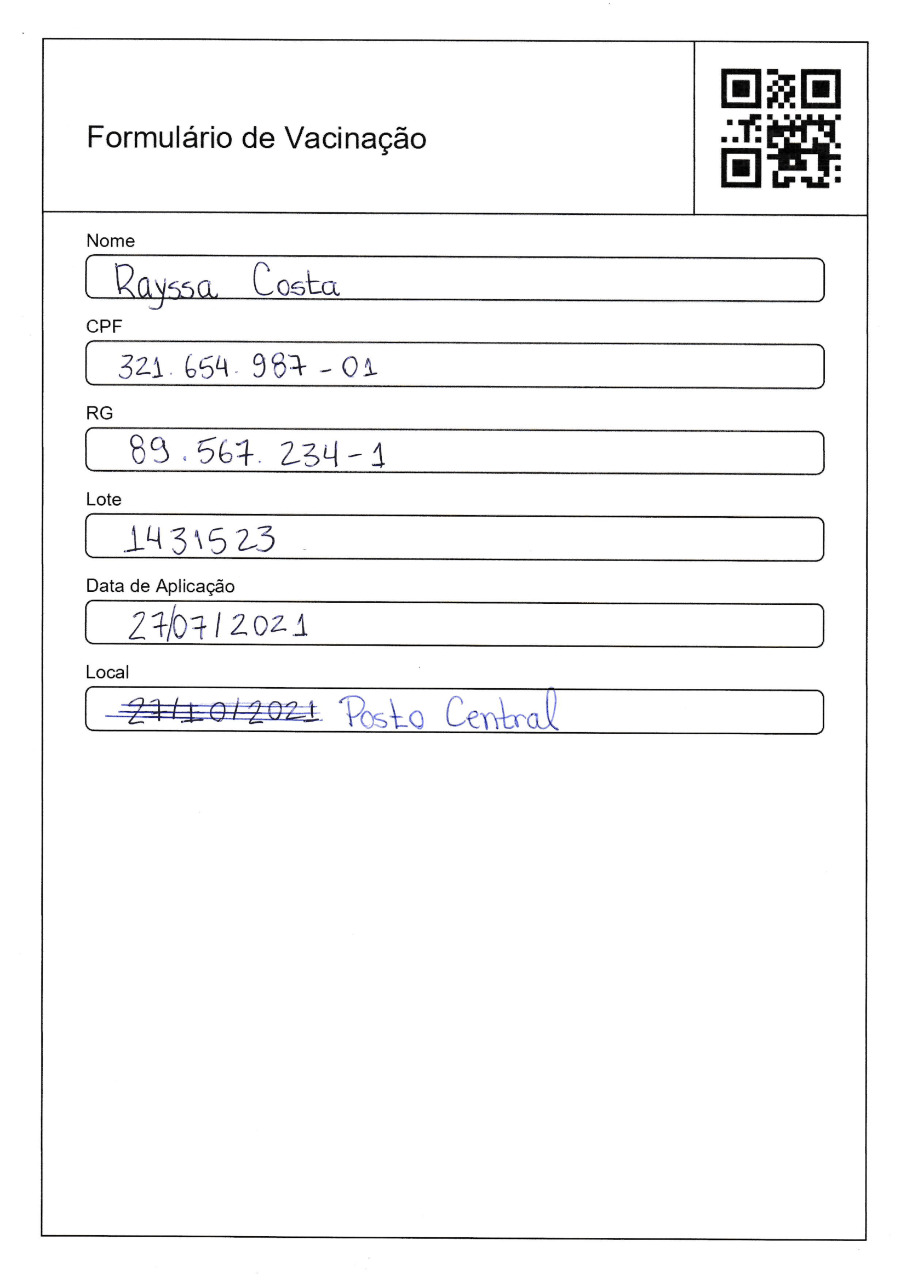 Formulário de Vacinação
Nome
Rayssa Costa
CPF
321.654.987-01
RG
89.567.234-1
Lote
1431523
Data de Aplicação
27/07/2021
Local
27/10/2021 Posto Central